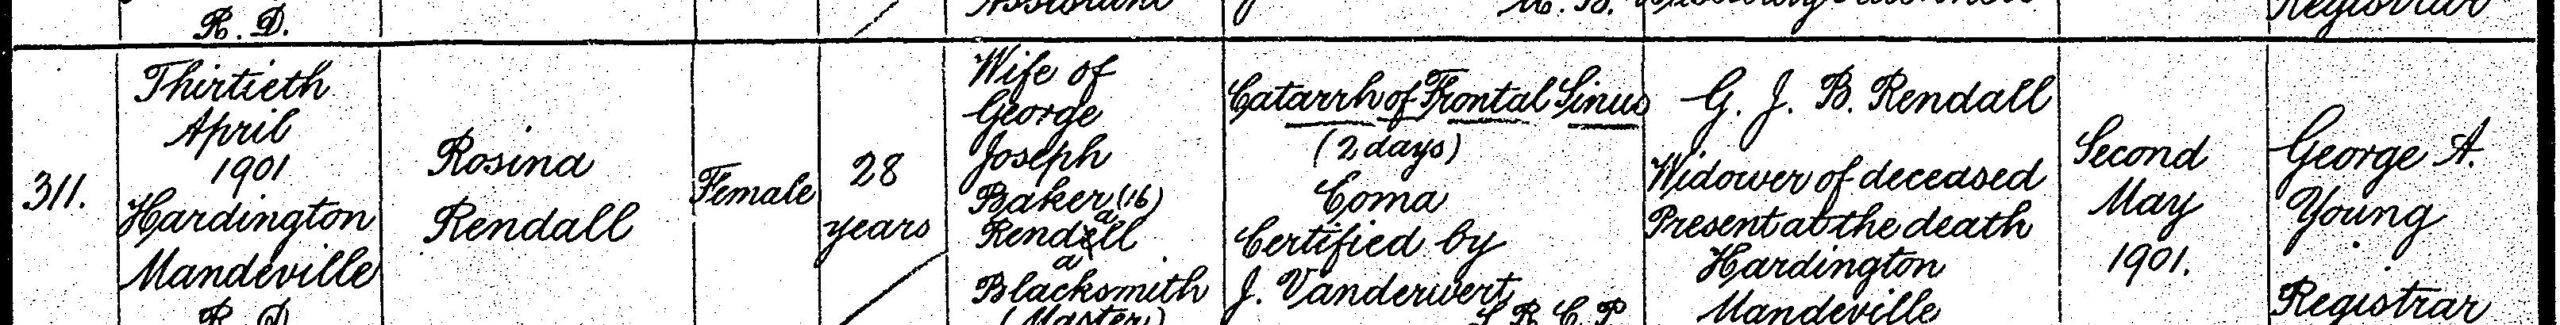 R. D.
311.
Thirtieth
April
1901
Hardington
Mandeville
R. D.
Rosina
Rendall
Female
28
years
Wife of
George
Joseph
Baker (16)
Rendell
a
a
Blacksmith
(Master)
Catarrh of Frontal Sinus
(2 days)
Coma
Certified by
J. Vanderwert
L R C P
G. J. B. Rendall
Widower of deceased
Present at the death
Hardington
Mandeville
Second
May
1901.
Registrar
George A.
Young
Registrar